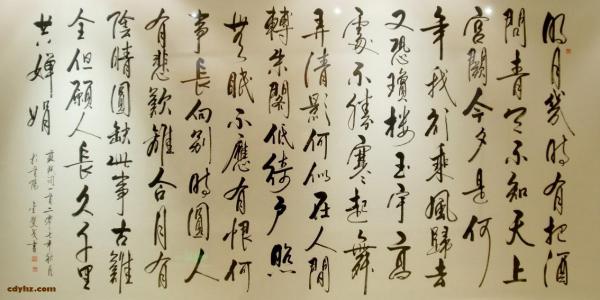 明月幾時有把酒
問青天不知天上
宮闕今夕是何
年我欲乘風歸去
又恐瓊樓玉宇高
處不勝寒起舞
弄清影何似在人間
轉朱閣低綺戶照
無眠不應有恨何
事長向別時圓人
有悲歡離合月有
陰晴圓缺此事古難
全但願人長久千里
共嬋娟
cdyhz.com